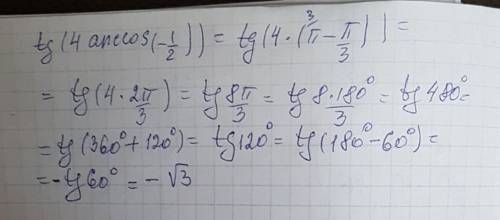 tg(4 arccos(-1/2)) = tg(4·(³π - π/3)) =
= tg(4·2π/3) = tg 8π/3 = tg 8·180°/3 = tg 480° =
= tg(360°+120°) = tg 120° = tg(180°-60°) =
= -tg 60° = -√3